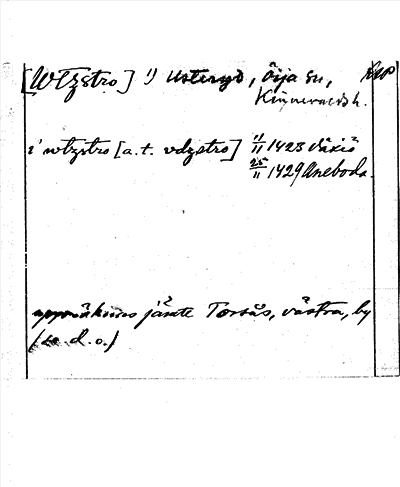 [Wtzstro] 1) Usteryd, Öija sn, RAP
Kinnevalds h.
i wtzstro [a.t. vdzstro] 11/11 1423 Växiö
25/11 1429 Aneboda.
jämte Torsås, västra, by
(se d.o.)